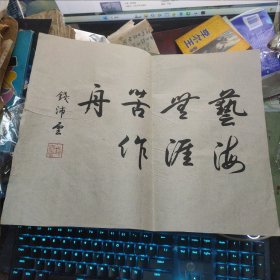 藝海
無涯
苦作
舟
錢沛雲